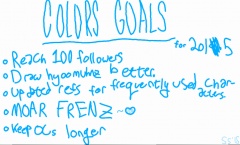 COLORS GOALS
for 2015
• Reach 100 followers
• Draw hyoomunz better
• updated refs for frequently used characters
• MOAR FRENZ ~♡
• Keep OCs longer